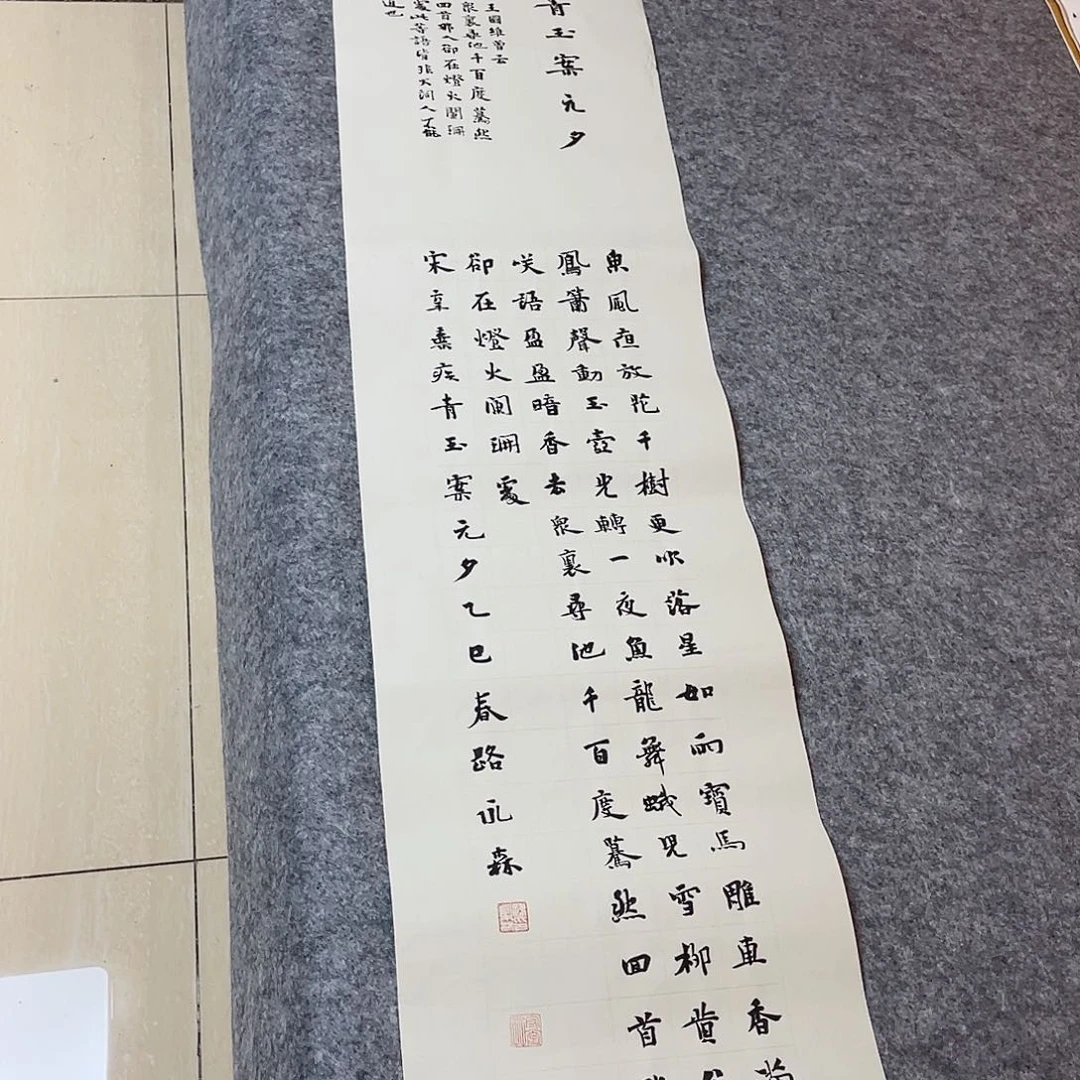 青玉案元夕
王國維曾云
衆裏尋他千百度驀然
回首那人卻在燈火闌珊
處此等語皆非大詞人不能
道也
東風夜放花千樹更吹落星如雨寶馬雕車香滿
鳳簫聲動玉壺光轉一夜魚龍舞蛾兒雪柳黃
咲語盈盈暗香去衆裏尋他千百度驀然回首
卻在燈火闌珊處
宋辛棄疾青玉案元夕乙巳春路永森